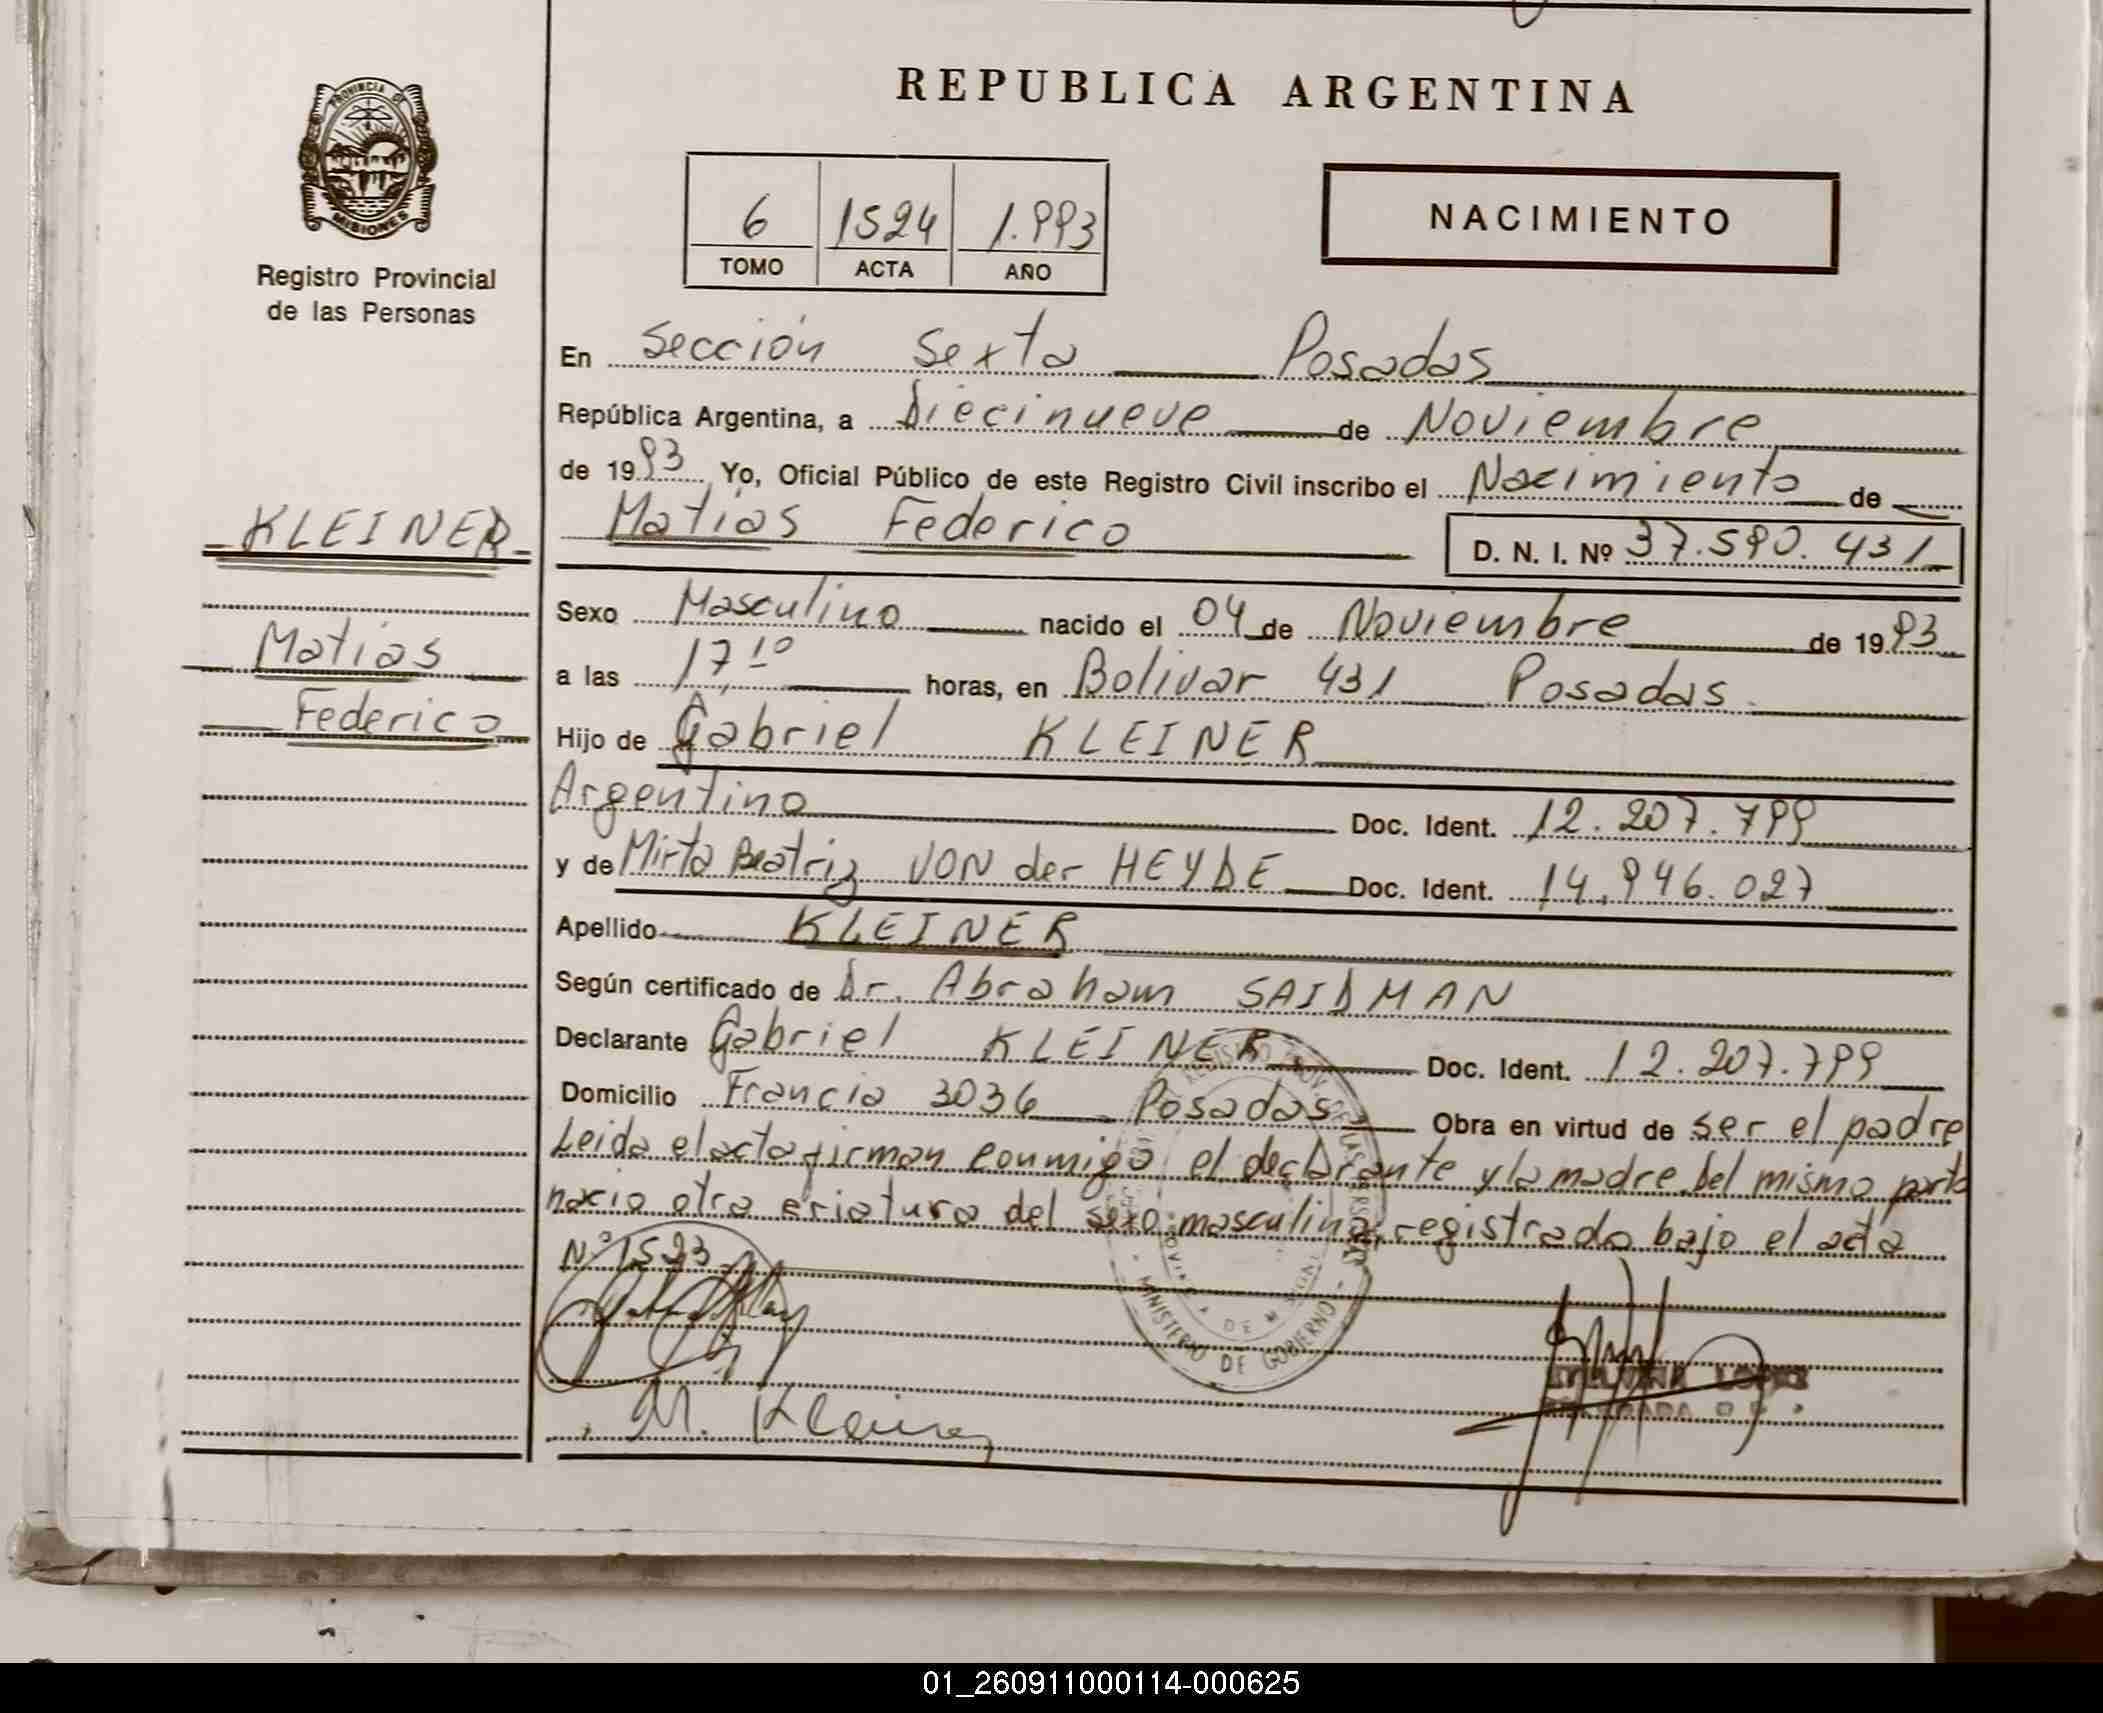 REPUBLICA ARGENTINA
PROVINCIA DE
MISIONES
Registro Provincial
de las Personas
6 1524 1.993
TOMO ACTA AÑO
NACIMIENTO
En Sección Sexta Posadas
República Argentina, a Diecinueve de Noviembre
de 1993 Yo, Oficial Público de este Registro Civil inscribo el Nacimiento de
KLEINER
Matias Federico
D. N. I. Nº 37.590.431
Sexo Masculino nacido el 04 de Noviembre de 1993
Matias
a las 17,10 horas, en Bolivar 431 Posadas
Federico
Hijo de Gabriel KLEINER
Argentino Doc. Ident. 12.207.799
y de Mirta Beatriz VON der HEYDE Doc. Ident. 14.946.027
Apellido KLEINER
Según certificado de Dr. Abraham SAIDMAN
Declarante Gabriel KLEINER Doc. Ident. 12.207.799
Domicilio Francia 3036 Posadas Obra en virtud de ser el padre
Leida el acta firman conmigo el declarante y la madre del mismo parto
nacio otra criatura del sexo masculino, registrado bajo el acta
Nº 1523
MINISTERIO DE GOBIERNO
M. Kleiner
LOPEZ
01_260911000114-000625